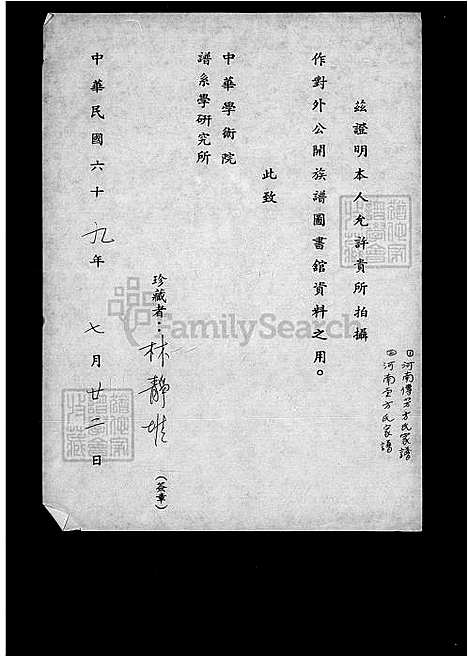 茲證明本人允許貴所拍攝
作對外公開族譜圖書館資料之用。
此致
中華學術院
譜系學研究所
珍藏者：林靜堆
(簽章)
中華民國六十九年七月廿二日
①河南傳方氏家譜
②河南方氏家譜
FamilySearch